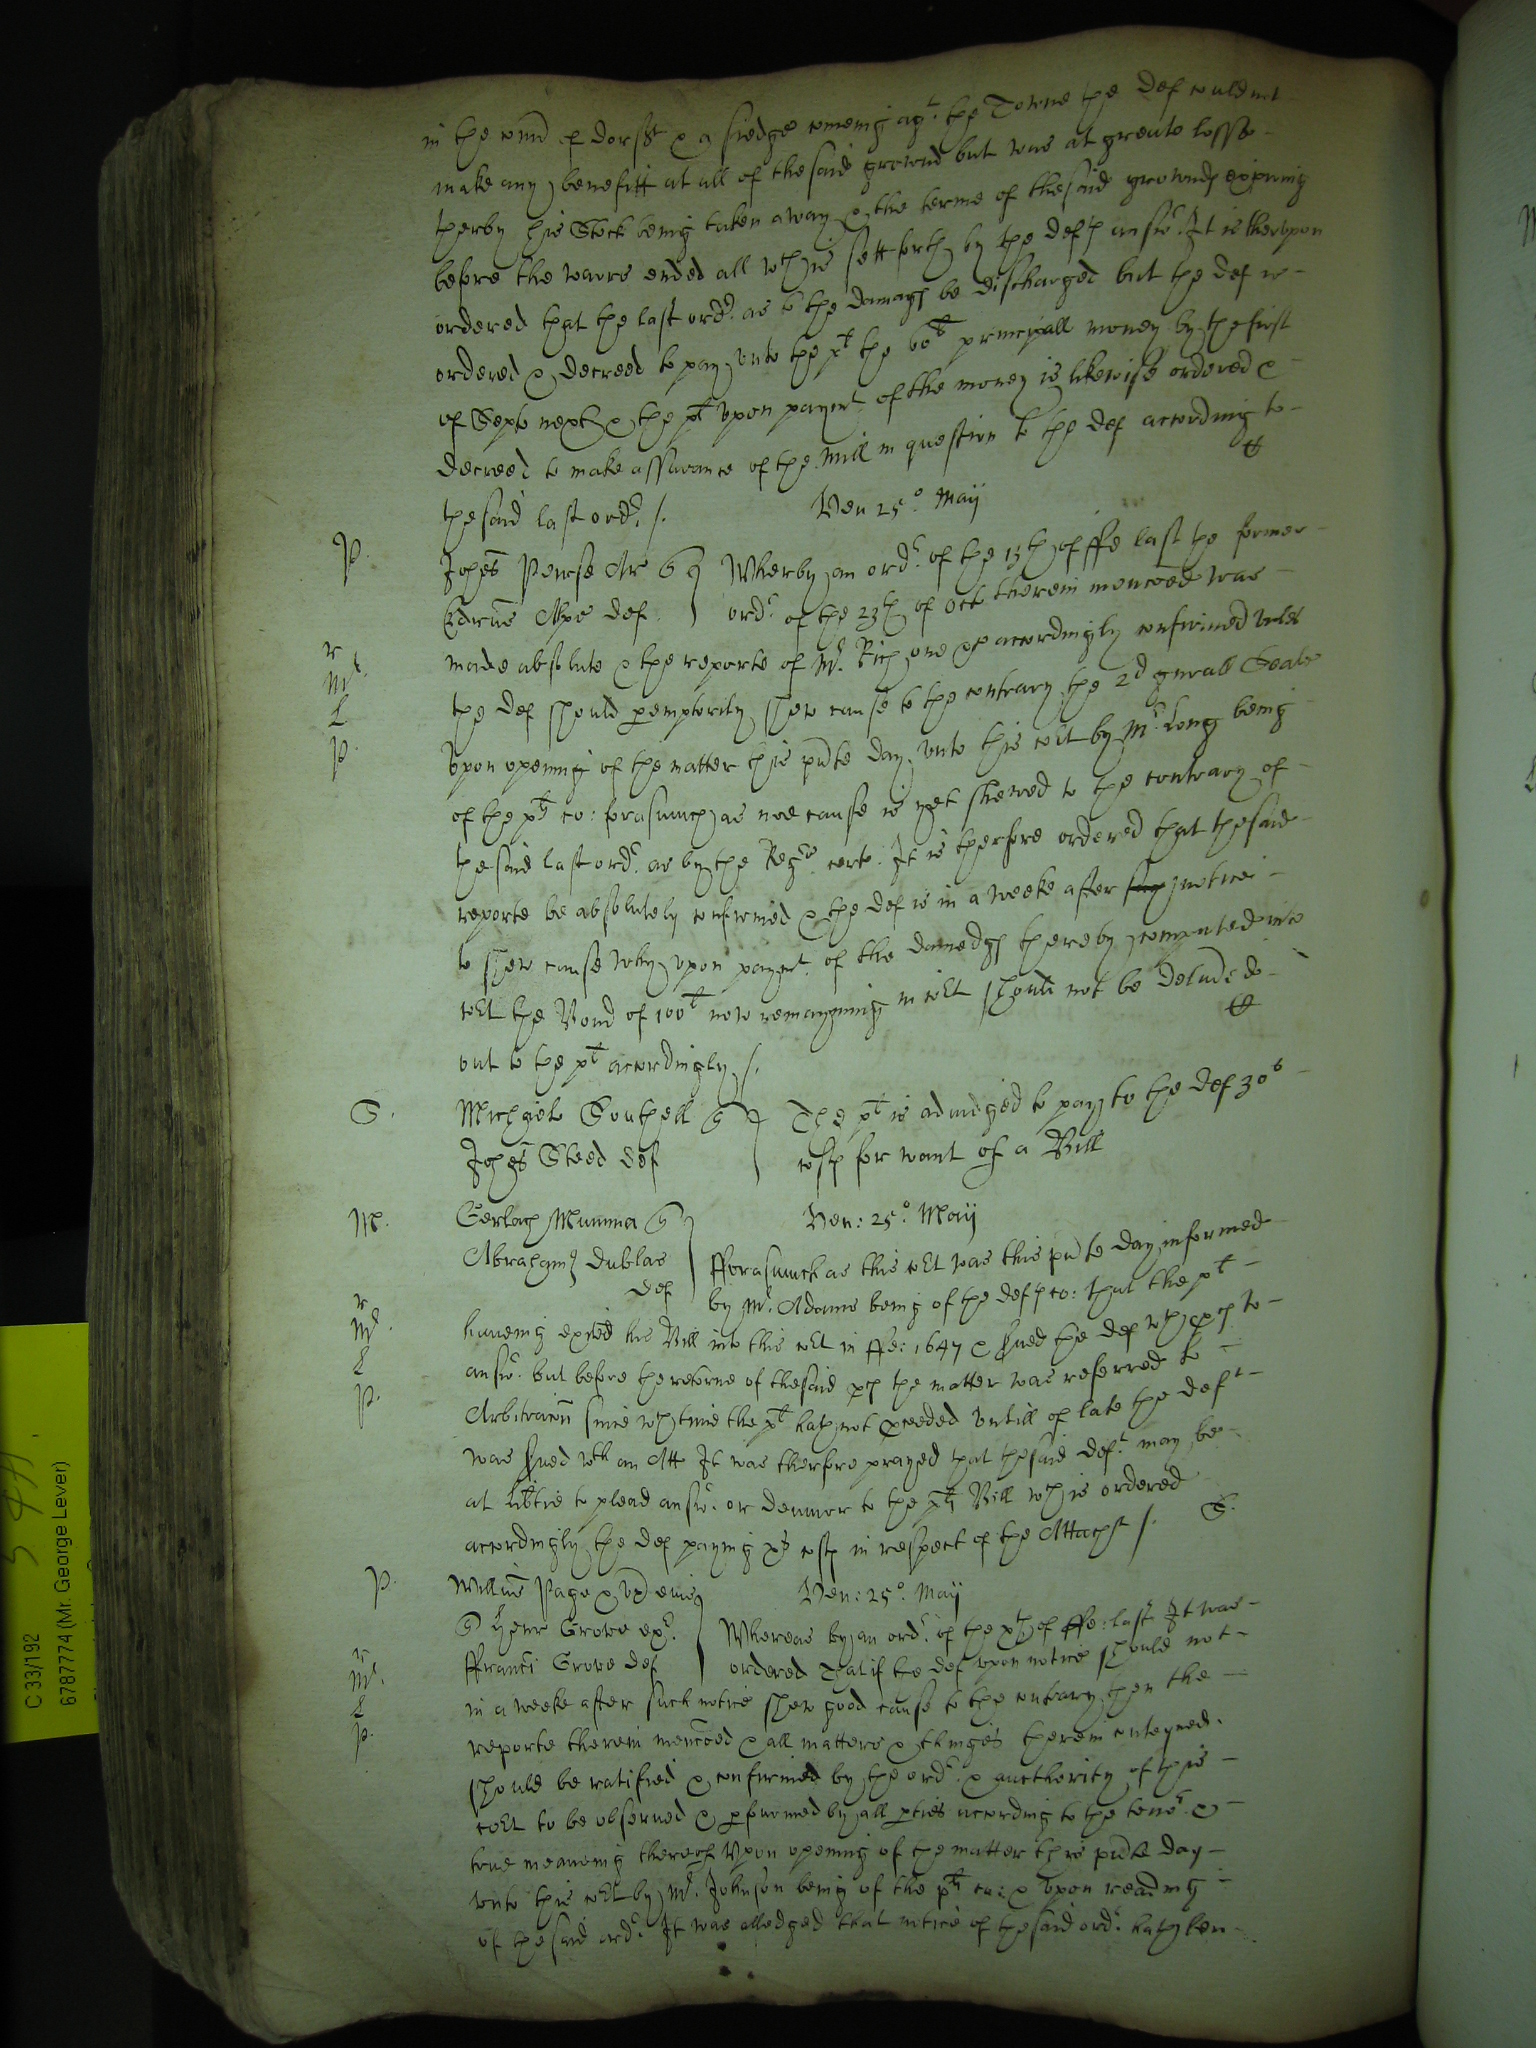 in the com̄ of dorsett & a siedge comeing agt. the Towne the Def could not
make any benefitt at all of the said ground but was at greate losse
therby his Stock being taken away & the terme of the said grounds expiring
before the warrs ended all wch is sett forth by the Defts answr. It is therupon
ordered that the last ordr. as to the damags be discharged but the def is
ordered & decreed to pay unto the plt the 60l principall money by the first
of Septr next & the plt upon paymt. of the money is likewise ordered &
decreed to make assurance of the Mill in question to the def according to
the said last ordr. /.
Ven 25o. Maij
P.
Johes Pearse Ar q Wherby an ordr. of the 13th of ffe last the former
def. ordr. of the 23th of Oct therein menc̄oed was
r
Mr.
L
P.
made absolute & the reporte of Mr. Rich one &c accordingly confirmed unles
the def should peremptorily shew cause to the contrary the 2d gnrall Seale
Upon opening of the matter this pn̄te day unto this cort by Mr. Long being
of the plts co: forasmuch as noe cause is yet shewed to the contrary of
the said last ordr. as by the Regrs certe. It is therfore ordered that the said
reporte be absolutely confirmed & the def is in a weeke after notice
to shew cause why upon paymt. of the damedgs thereby computed into
cort the Bond of 100l now remayning in cort should not be deliūed
out to the plt accordingly /.
S.
Michael Southell q The plt is adiudged to pay to the def 30s
Johes Steed def costs for want of a Bill
M.
Gerlach Mumma q Ven: 25o. Maij
Abraham Dublas fforasmuch as this cort was this pn̄te day informed
def by Mr. Adams being of the defts co: that the plt
r
Mr.
L
P.
haveing exited his Bill into this cort in ffe: 1647 & sued the def wth pcs to
answr. but before the retorne of the said pcs the matter was referred to
Arbitrac̄on since wch time the plt hath not proceeded untill of late the deft
was sued wth an Att It was therfore prayed that the said deft. may be
at lib̄tie to plead answr. or demur to the plts Bill wch is ordered
accordingly the def paying xxs costs in respect of the Attachmt /. S.
P.
Willus Page & ux eius Ven: 25o. Maij
q Henr Grove exr. Whereas by an ordr. of the xth of ffe: last It was
ffranc̄i Grove def ordered That if the def upon notice should not
r
Mr.
L
P.
in a weeke after such notice shew good cause to the contrary then the
reporte therein menc̄oed & all matters & things therein conteyned
should be ratified & confirmed by the ordr. & aucthority of this
cort to be observed & performed by all pties according to the tenor. &
true meaneing thereof Upon opening of the matter this pn̄te day
unto this cort by Mr. Johnson being of the plts co: & upon reading
of the said ordr. It was alledged that notice of the said ordr. hath ben
C 33/192
6787774 (Mr. George Lever)